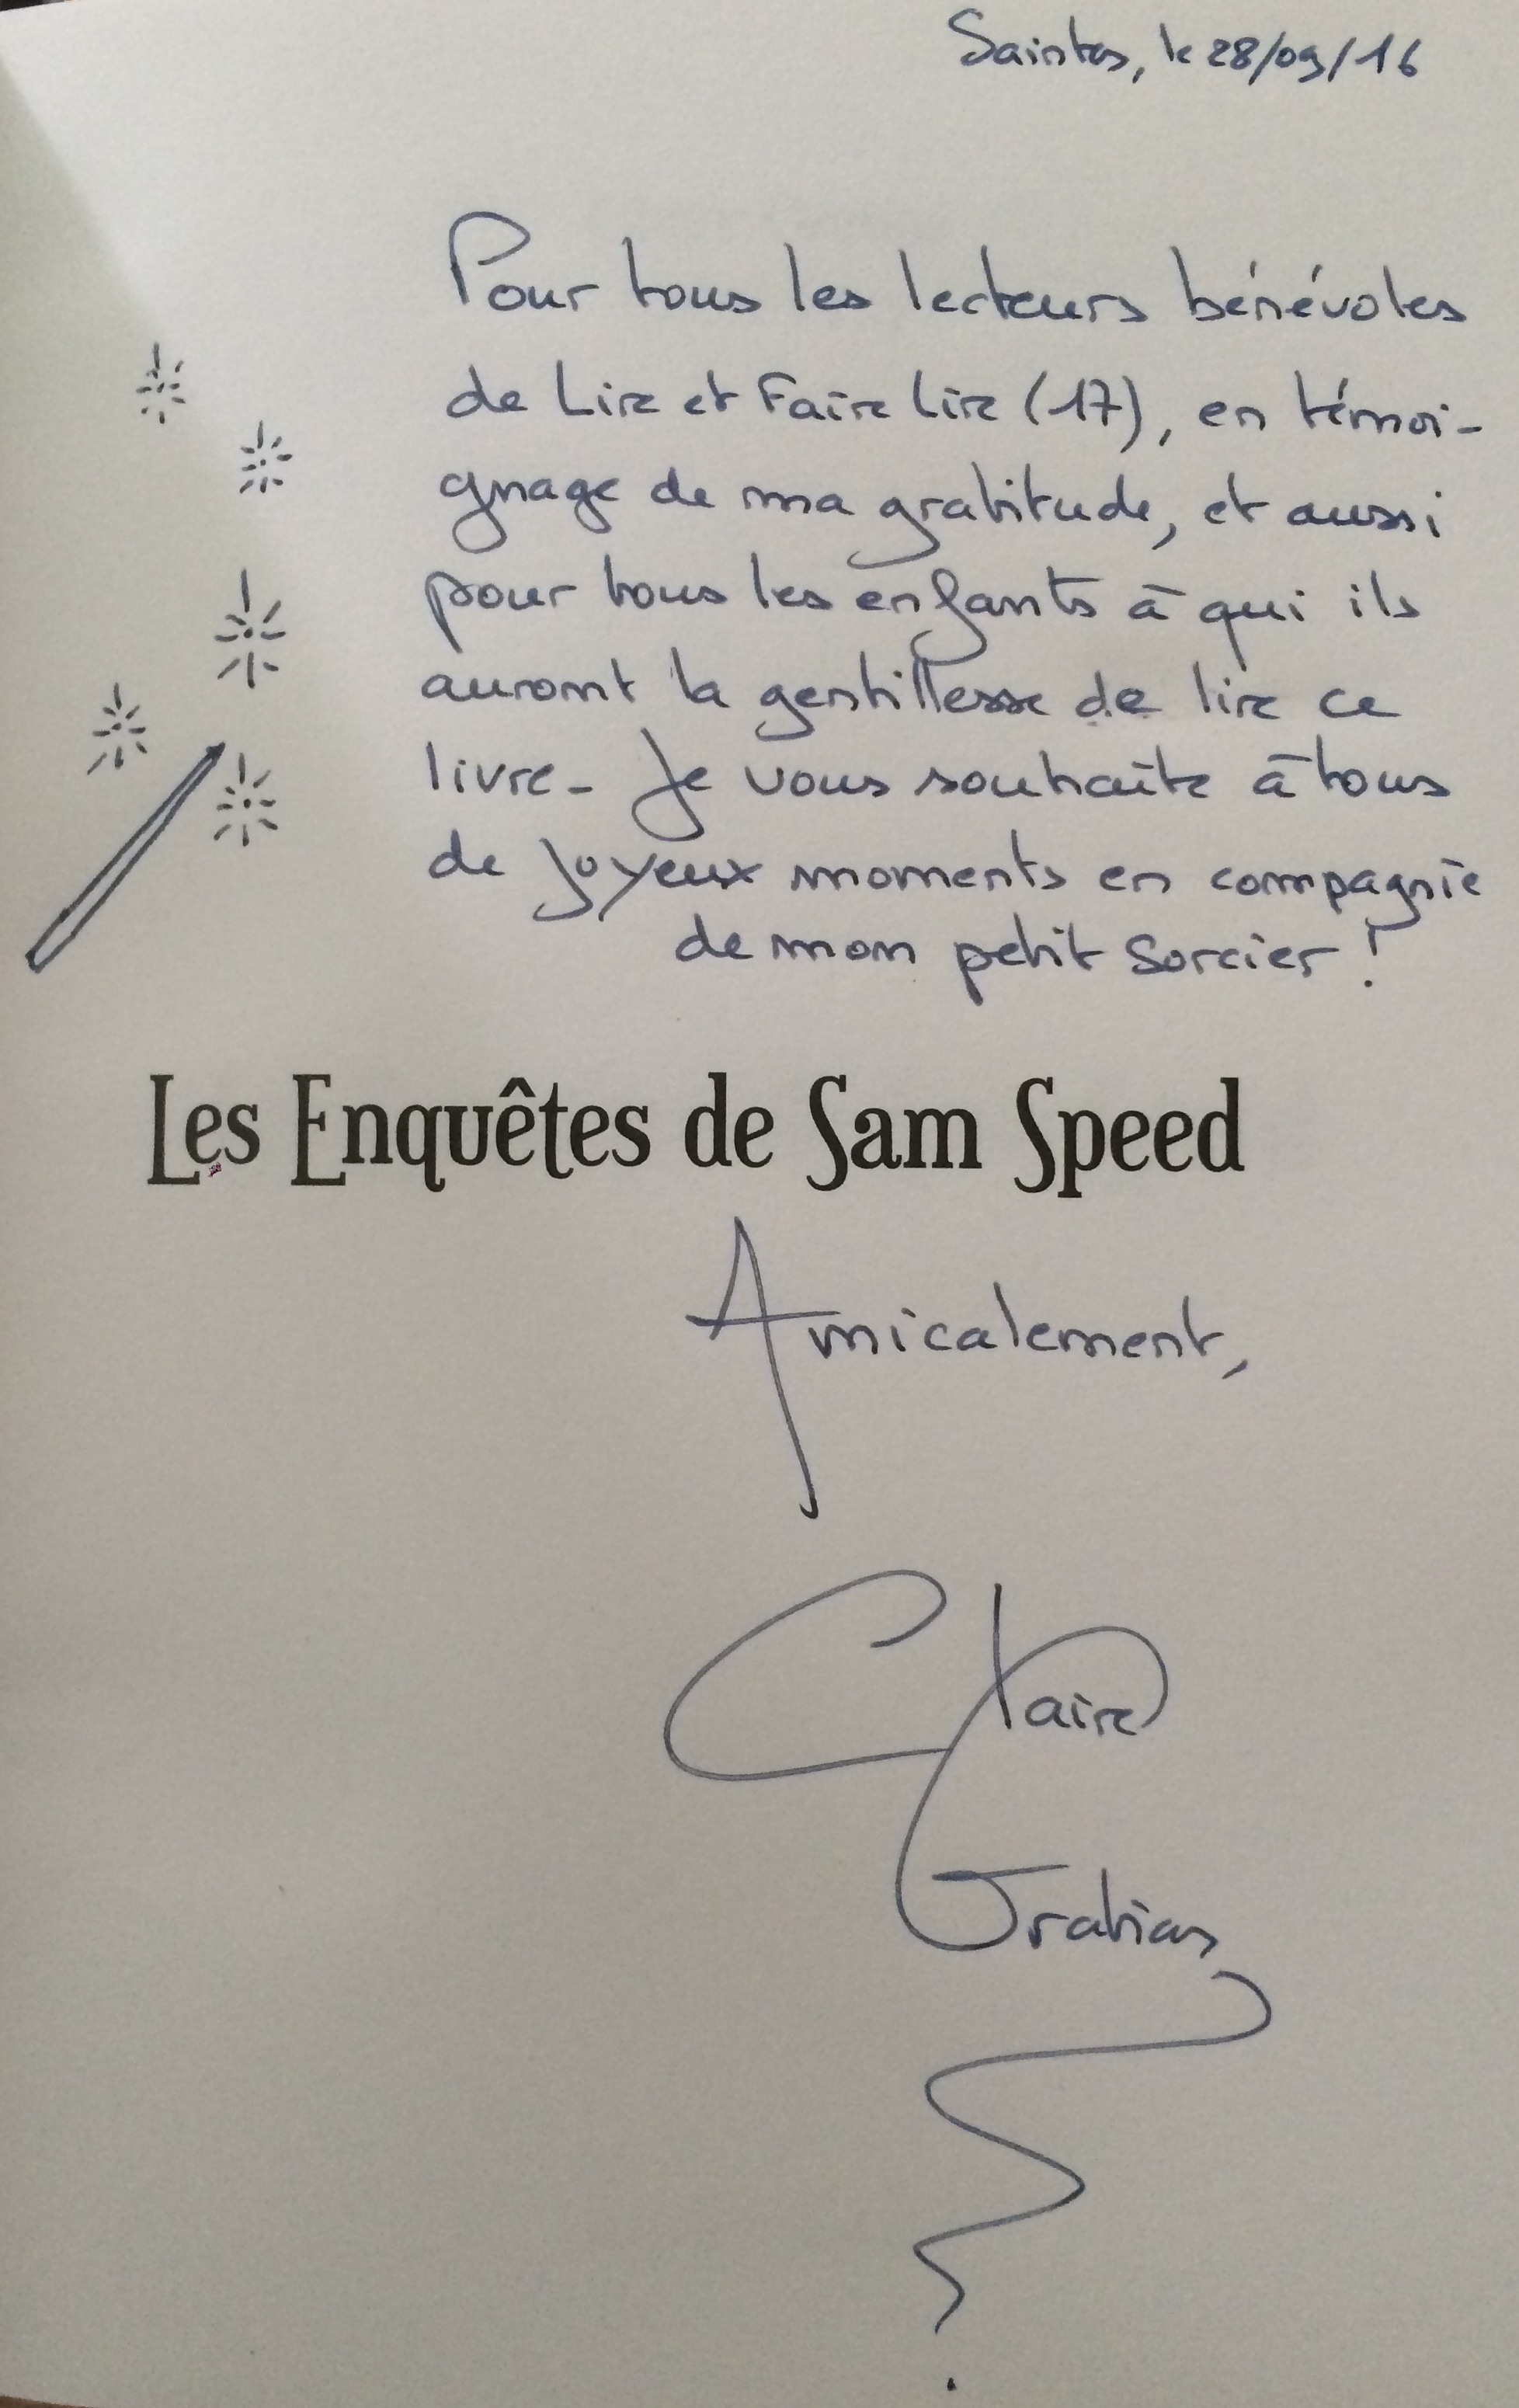 Saintes, le 28/09/16
Pour tous les lecteurs bénévoles
de Lire et Faire Lire (17), en témoi-
gnage de ma gratitude, et aussi
pour tous les enfants à qui ils
auront la gentillesse de lire ce
livre. Je vous souhaite à tous
de joyeux moments en compagnie
de mon petit sorcier !
Les Enquêtes de Sam Speed
Amicalement,
Claire
Gratias